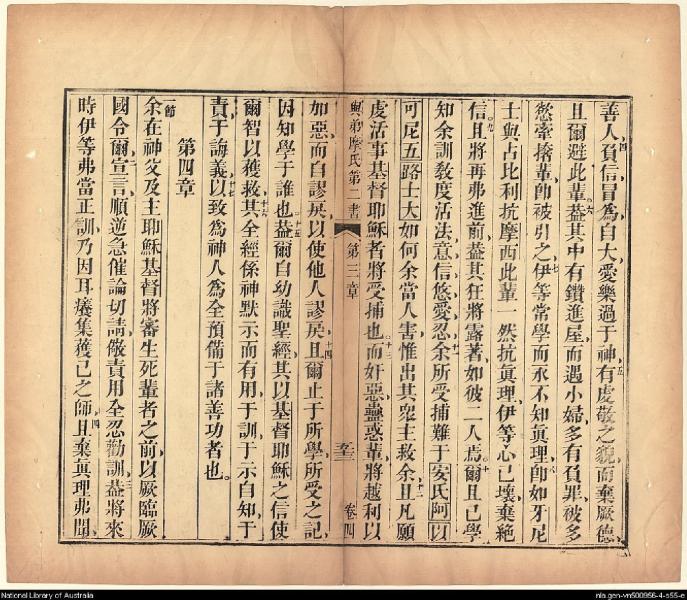 善人負信冒爲自大愛樂過于神有虔敬之貌而棄厥德
且爾避此輩葢其中有鑽進屋而遇小婦多有負罪被多
慾牽捨輩卽被引之伊等常學而永不知眞理卽如牙尼
士與占比利抗摩西此輩一然抗眞理伊等心已壞棄絕
信且將再弗進前葢其狂將露著如彼二人焉爾且已學
知余訓敎度活法意信悠愛忍余所受捕難于安氏阿以
可尼五路士大如何余當人害惟出其衆主救余且凡願
虔活事基督耶穌者將受捕也而奸惡蠱惑輩將越利以
與弟摩氏第二書 第三章 卷四
如惡而自謬戾以使他人謬戾且爾止于所學所受之記
因知學于誰也葢爾自幼識聖經其以基督耶穌之信使
爾智以獲救其全經係神默示而有用于訓于示自知于
責于誨義以致爲神人爲全預備于諸善功者也
第四章
一節余在神父及主耶穌基督將審生死輩者之前以厥臨厥
國令爾宣言順逆急催論切請儆責用全忍勸訓葢將來
時伊等弗當正訓乃因耳癢集獲已之師且棄眞理弗聞
National Library of Australia
nla.gen-vn500956-4-s55-e